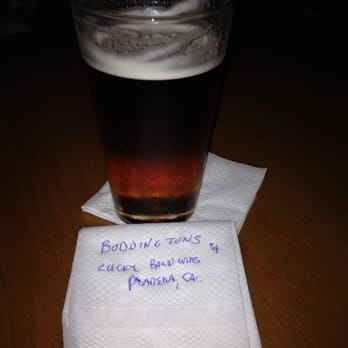 BODDINGTONS $4
LUCKY BALDWINS
PASADENA, CA.